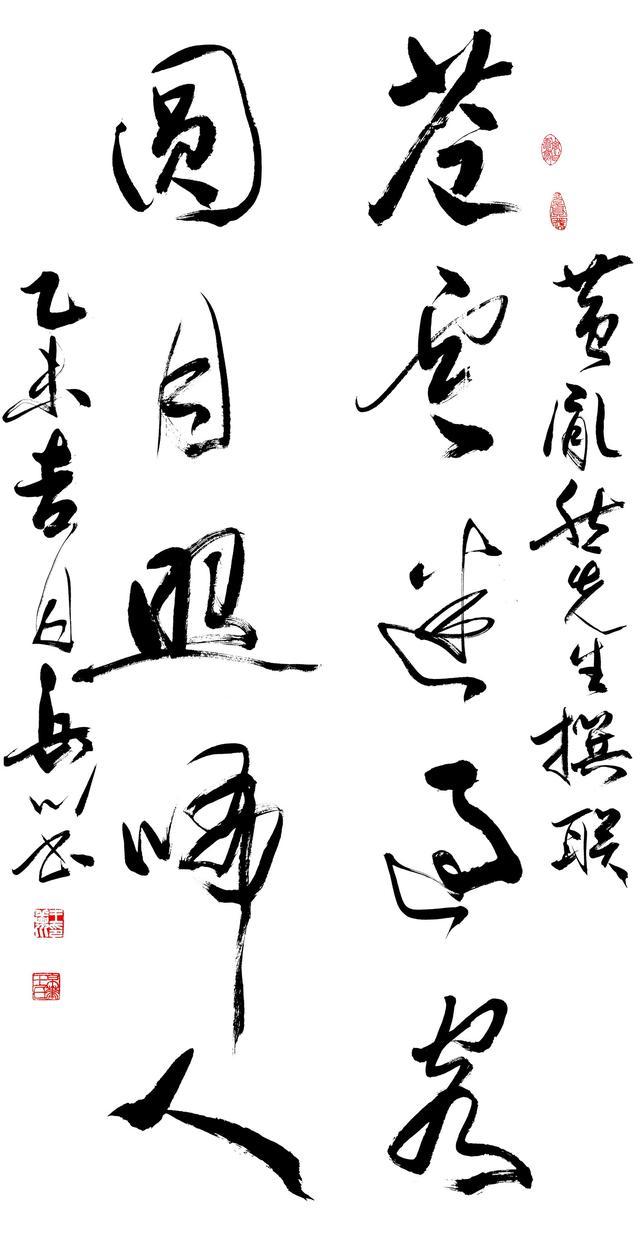 黄胤然先生撰联
苍云迷过客
圆月照归人
乙未吉月岳川书